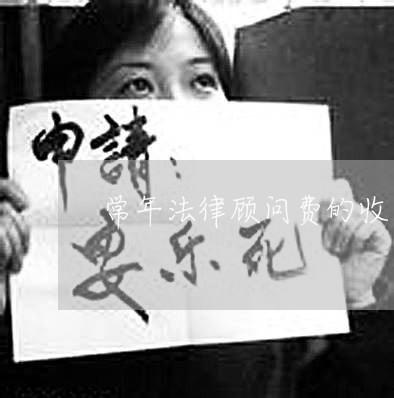 申請：
常年法律顾问费的收
安乐死